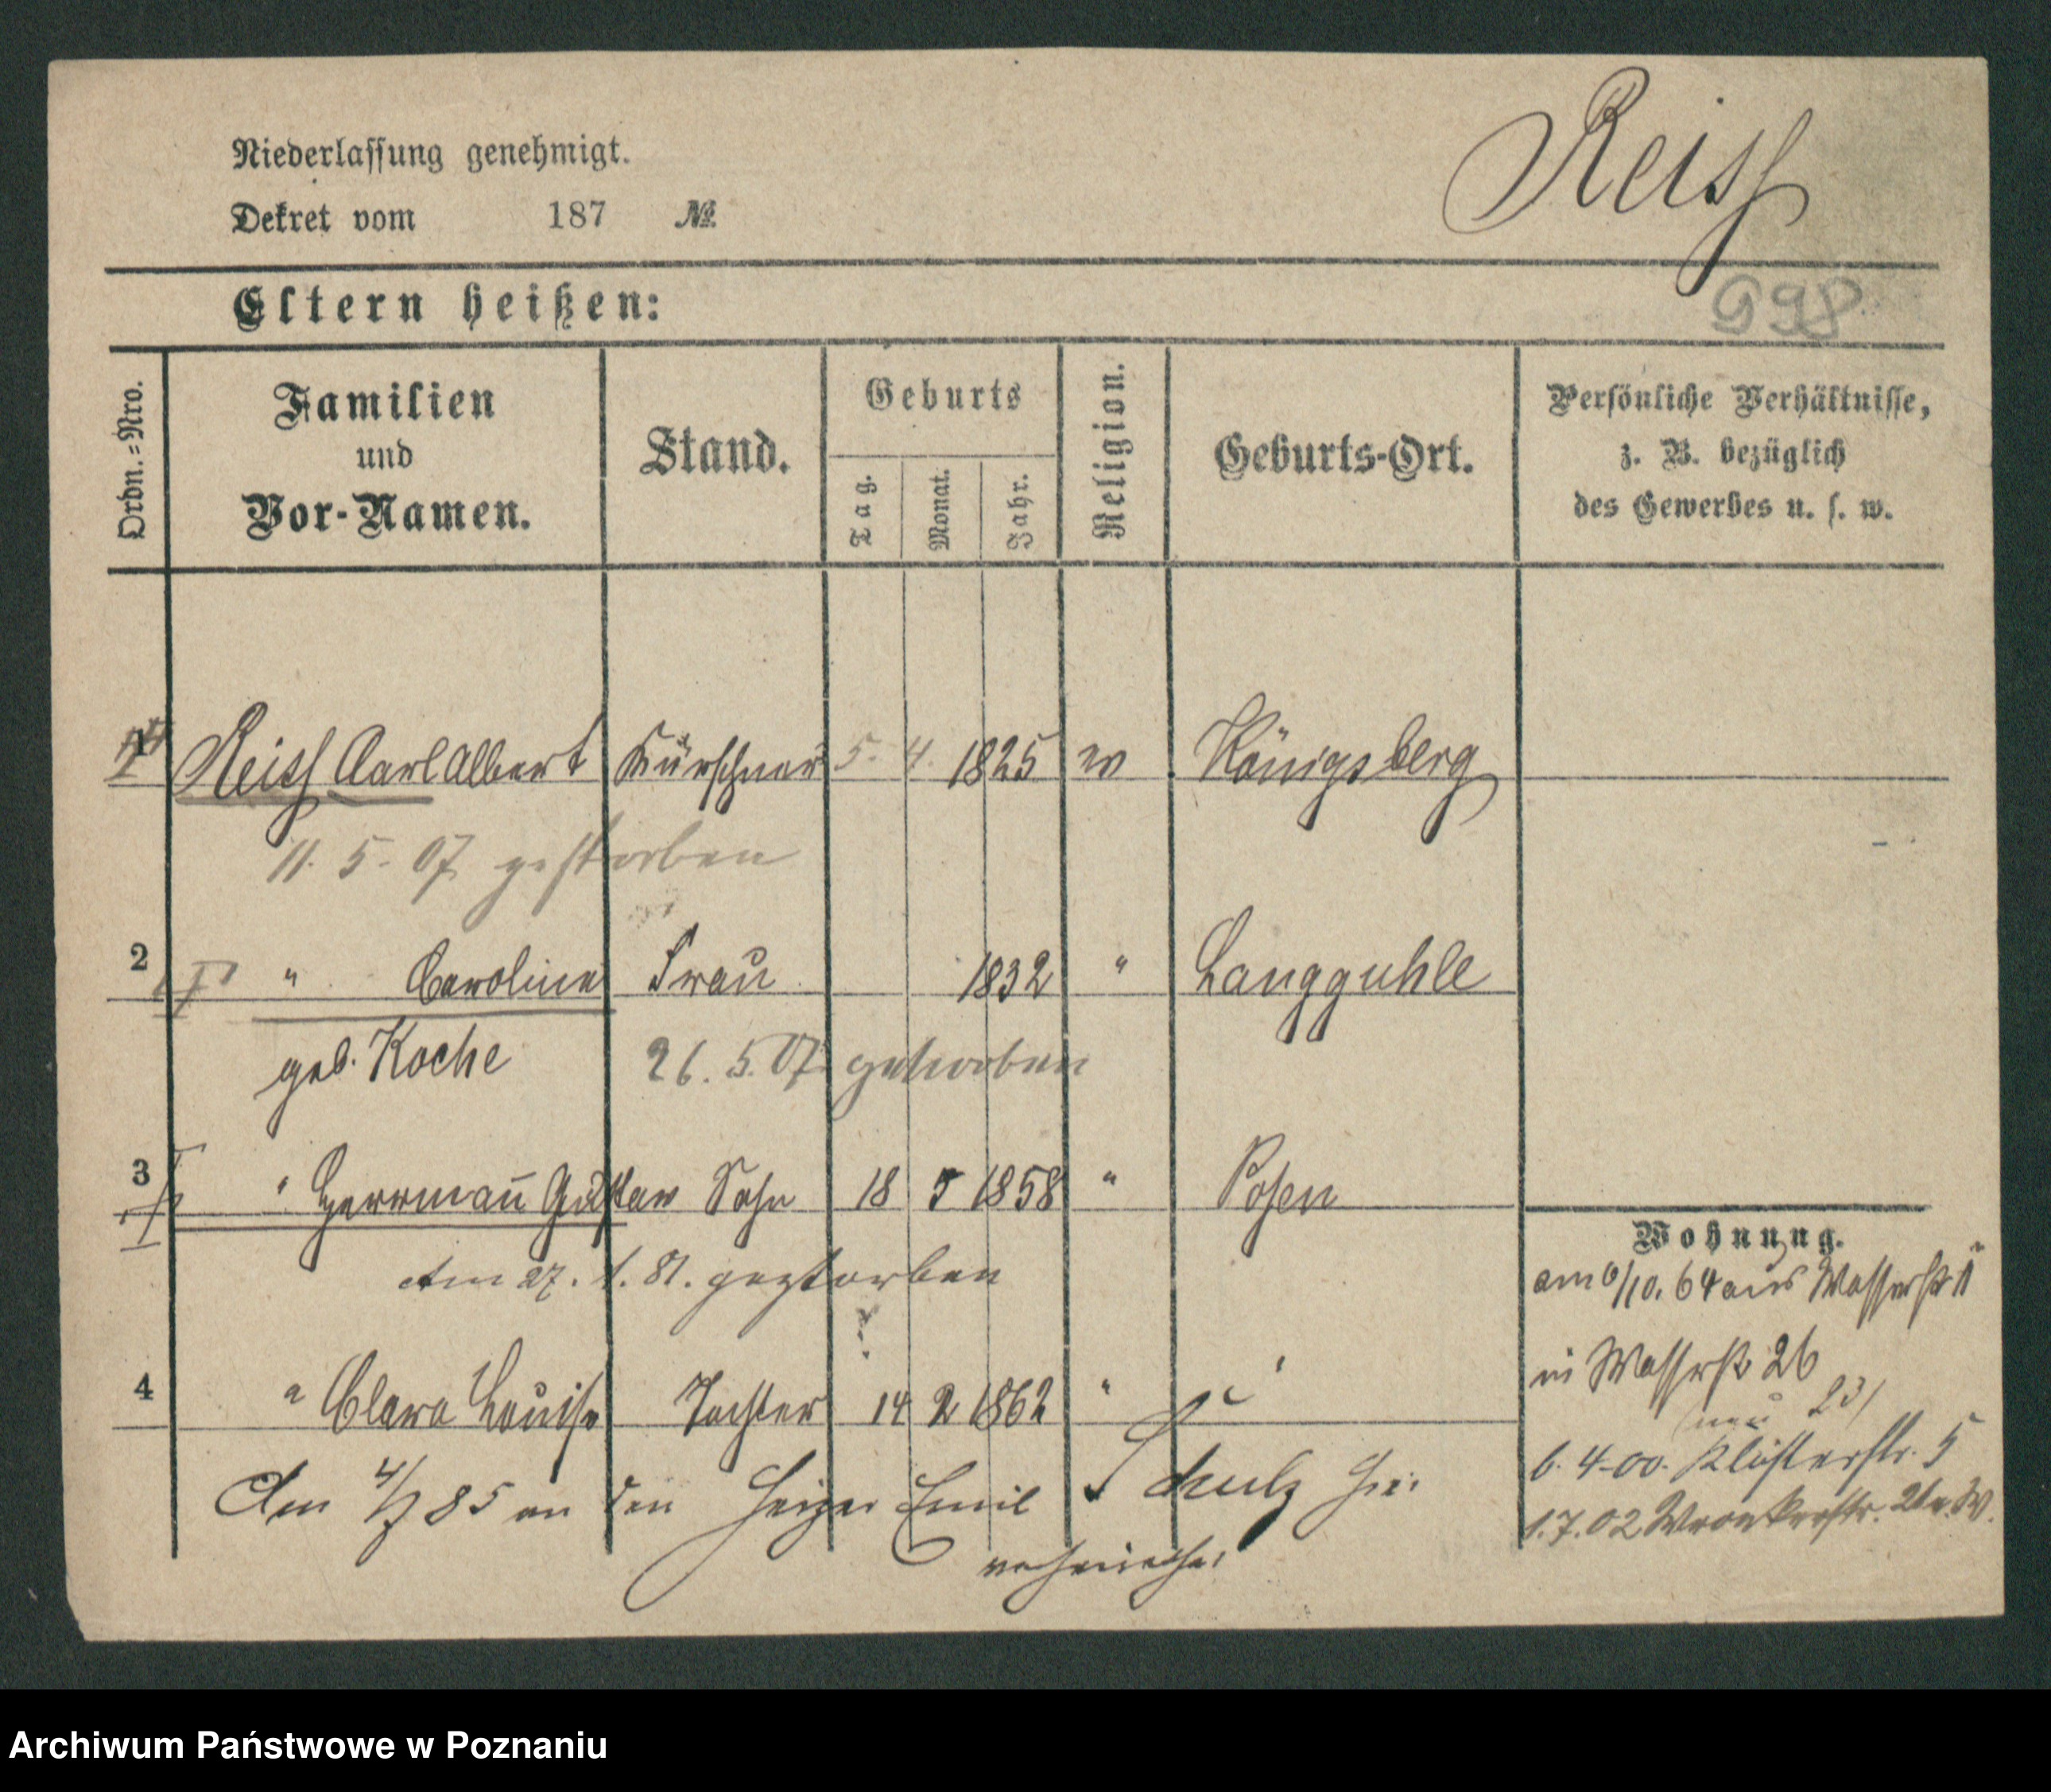 Reiss
Niederlassung genehmigt.
Dekret vom 187 №
998
Eltern heißen:
Ordn.=Nro.
Familien
und
Vor-Namen.
Stand.
Geburts
Tag.
Monat.
Jahr.
Religion.
Geburts-Ort.
Persönliche Verhältnisse,
z. B. bezüglich
des Gewerbes u. s. w.
1 Reiss Carl Albert Kürschner 5. 4. 1825 Königsberg
11. 5. 07 gestorben
2 " Caroline Frau 1832 " Langguhle
geb. Koche 26. 5. 07 gestorben
3 " Herrmann Gustav Sohn 18 5 1858 " Posen
Am 27. 1. 81. gestorben
4 " Clara Louise Tochter 14 2 1862 " "
Am 4/7 85 an den Heizer Emil Schulz hier
verheirathet
Wohnung.
am 6/10. 64 aus Wasserstr 1
in Wasserstr 26
(neu 23)
6. 4. 00. Klosterstr. 5
1. 7. 02 Wronkerstr.
Archiwum Państwowe w Poznaniu